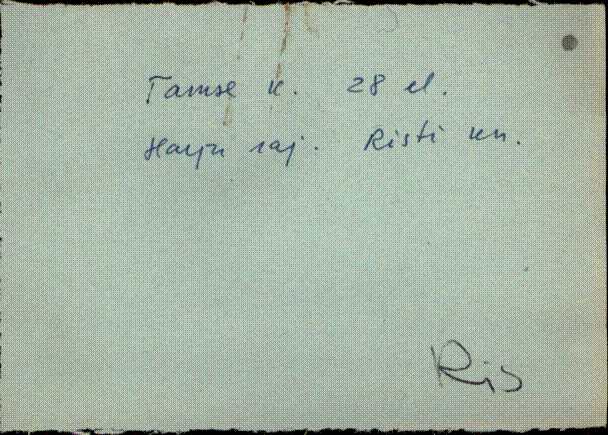 Tamse k. 28 el.
Harju raj. Risti kn.
Ris